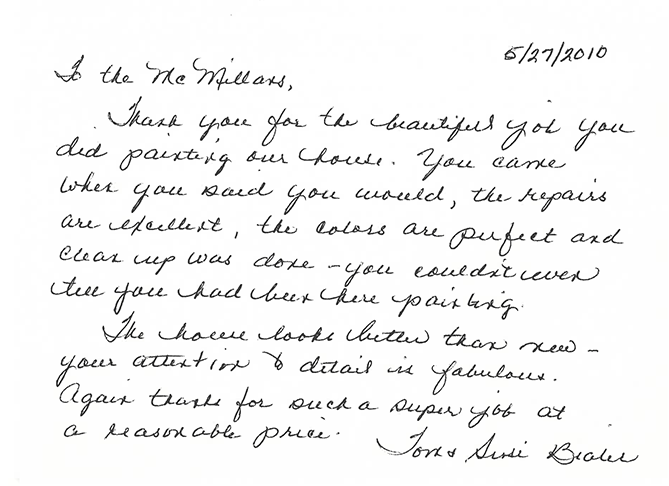 5/27/2010
To the McMillans,
Thank you for the beautiful job you
did painting our house. You came
when you said you would, the repairs
are excellent, the colors are perfect and
clean up was done - you couldn't even
tell you had been here painting.
The house looks better than new -
your attention to detail is fabulous.
Again thanks for such a super job at
a reasonable price.
Tom &